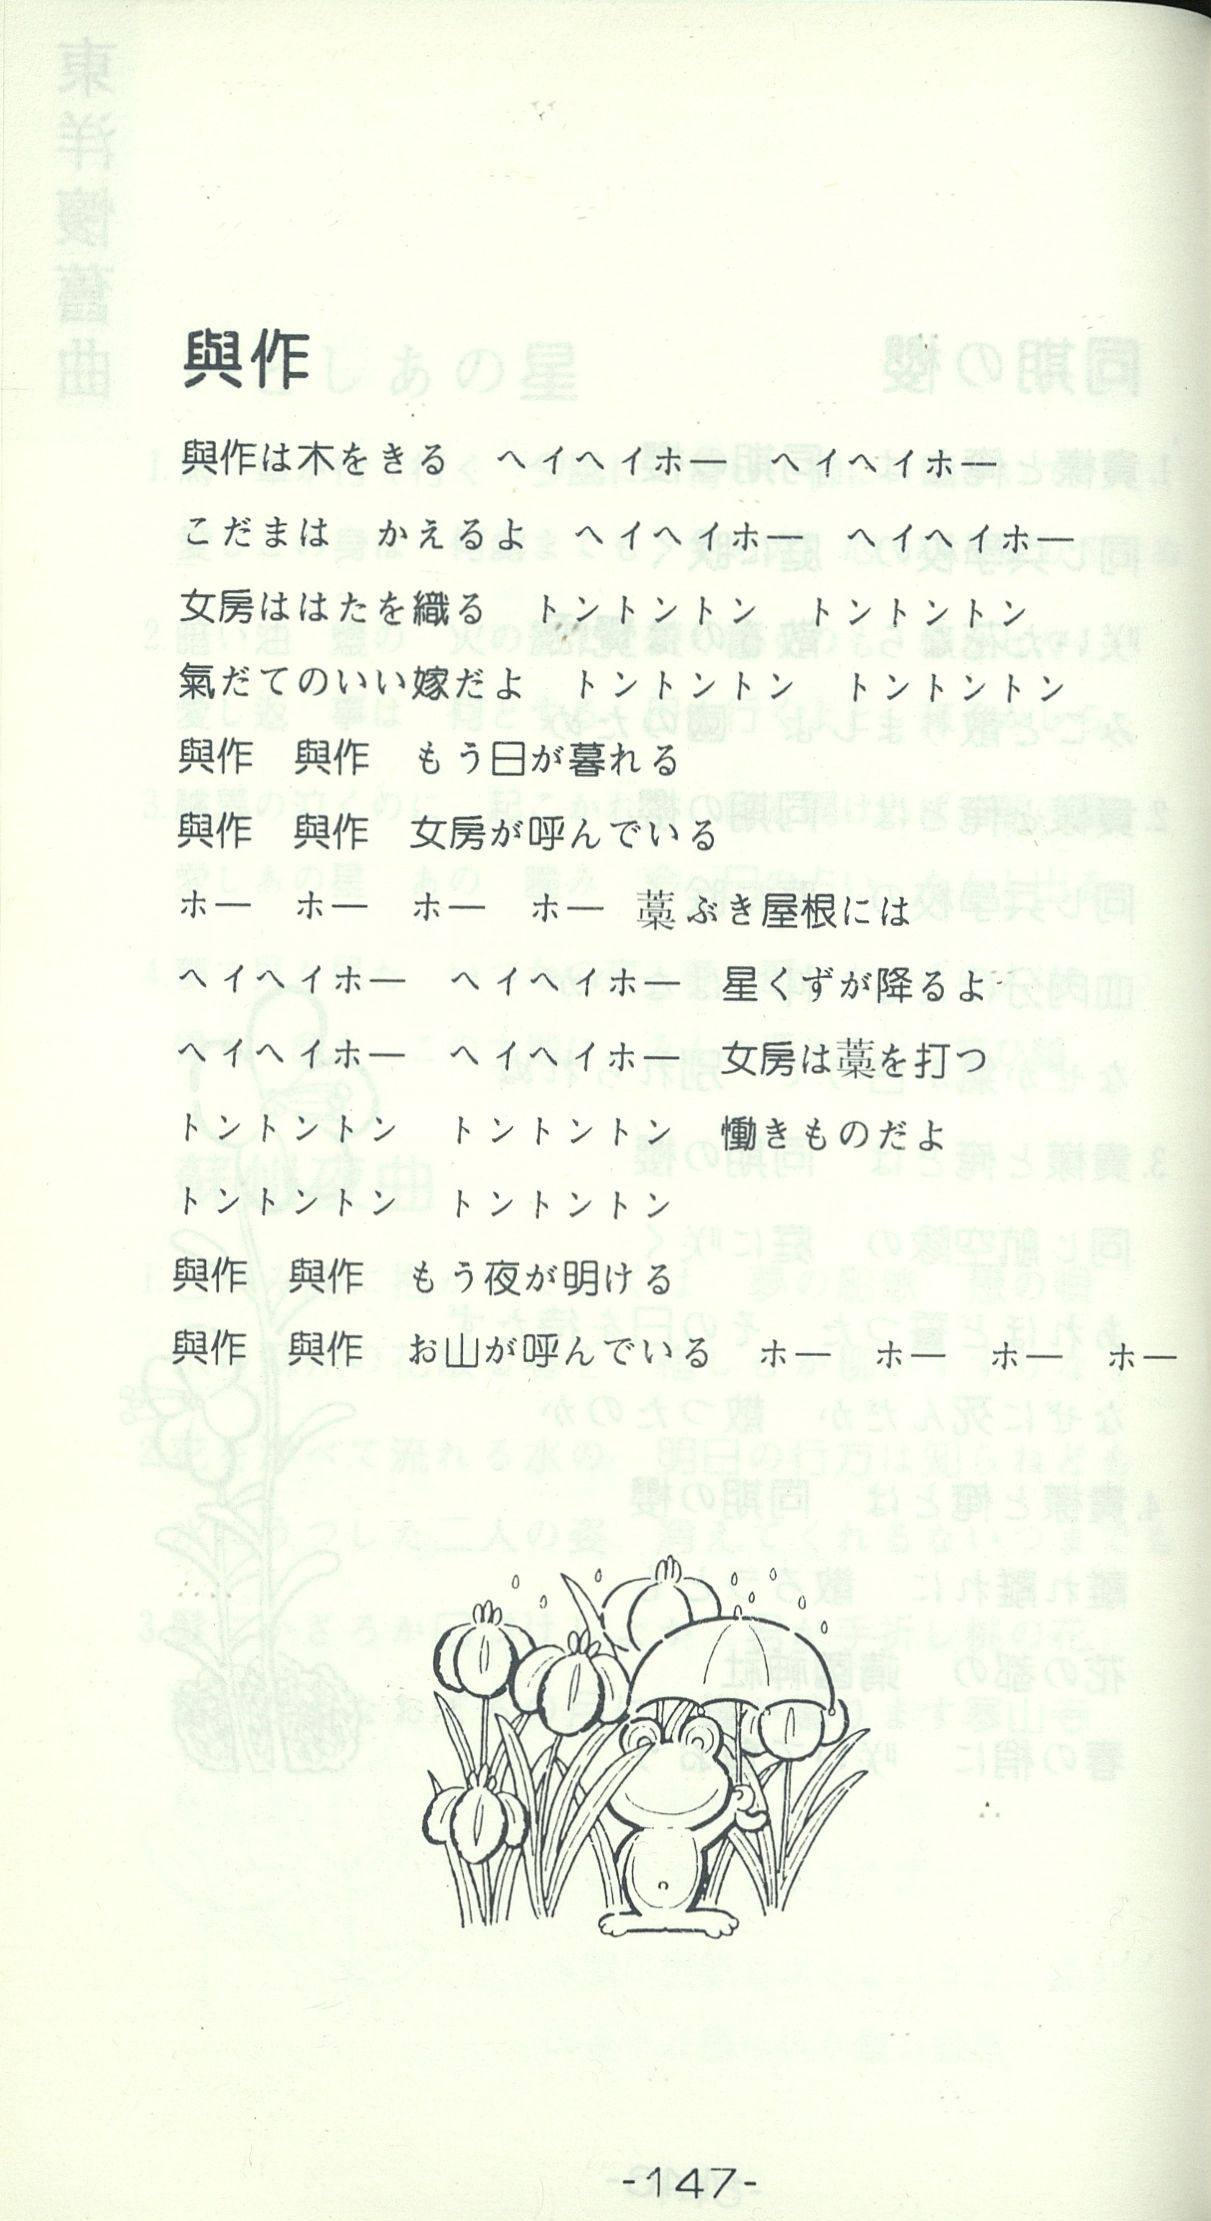 與作
與作は木をきる　ヘイヘイホー　ヘイヘイホー
こだまは　かえるよ　ヘイヘイホー　ヘイヘイホー
女房ははたを織る　トントントン　トントントン
氣だてのいい嫁だよ　トントントン　トントントン
與作　與作　もう日が暮れる
與作　與作　女房が呼んでいる
ホー　ホー　ホー　ホー　藁ぶき屋根には
ヘイヘイホー　ヘイヘイホー　星くずが降るよ
ヘイヘイホー　ヘイヘイホー　女房は藁を打つ
トントントン　トントントン　働きものだよ
トントントン　トントントン
與作　與作　もう夜が明ける
與作　與作　お山が呼んでいる　ホー　ホー　ホー　ホー
-147-